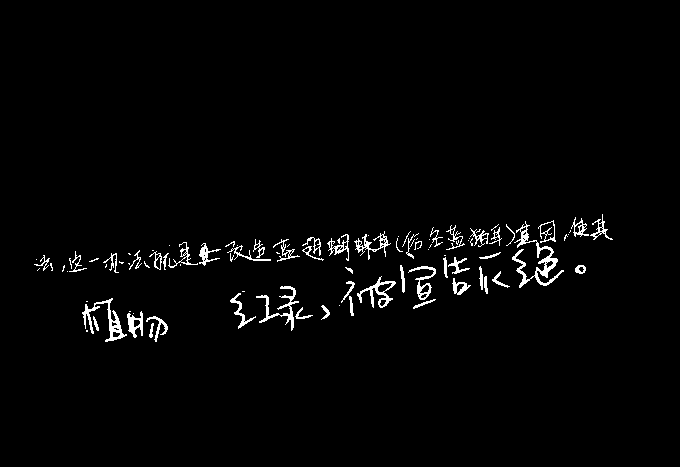 法,这一办法就是让改造蓝蝴蝶草(俗名蓝猪耳)基因,使其
植物 红录,被宣告灭绝。